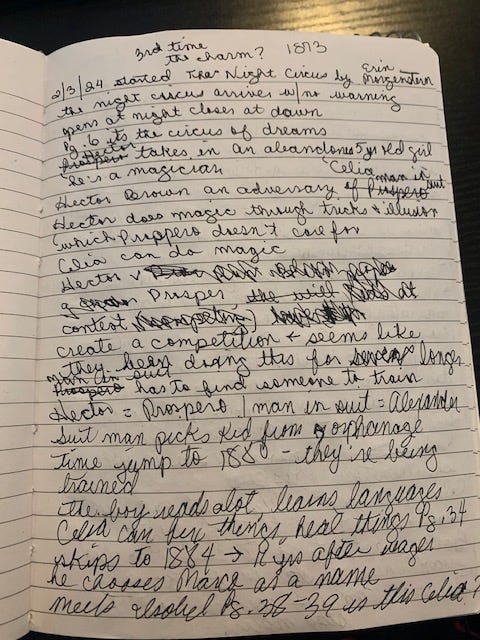 3rd time
the charm? 1873
2/3/24 started The Night Circus by Erin Morgenstern
the night circus arrives w/no warning
opens at night closes at dawn
Pg. 6 its the circus of dreams
takes in an abandoned 5 yr old girl
he's a magician "Celia
Hector Brown an adversary of man in suit
Hector does magic through tricks + illusion
which Proppero doesn't care for
Celia can do magic
Hector
Prosper at
contest
create a competition + seems like
they been doing this for longer
man in suit has to find someone to train
Hector = Prospero / man in suit = Alexander
suit man picks kid from orphanage
time jump to 1880 - they're being
trained
the boy reads alot, learns languages
Celia can fix things, heal things Pg. 34
skips to 1884 → yrs after wager
he chooses Marco as a name
meets Isobel Pg. 38-39 is this Celia?